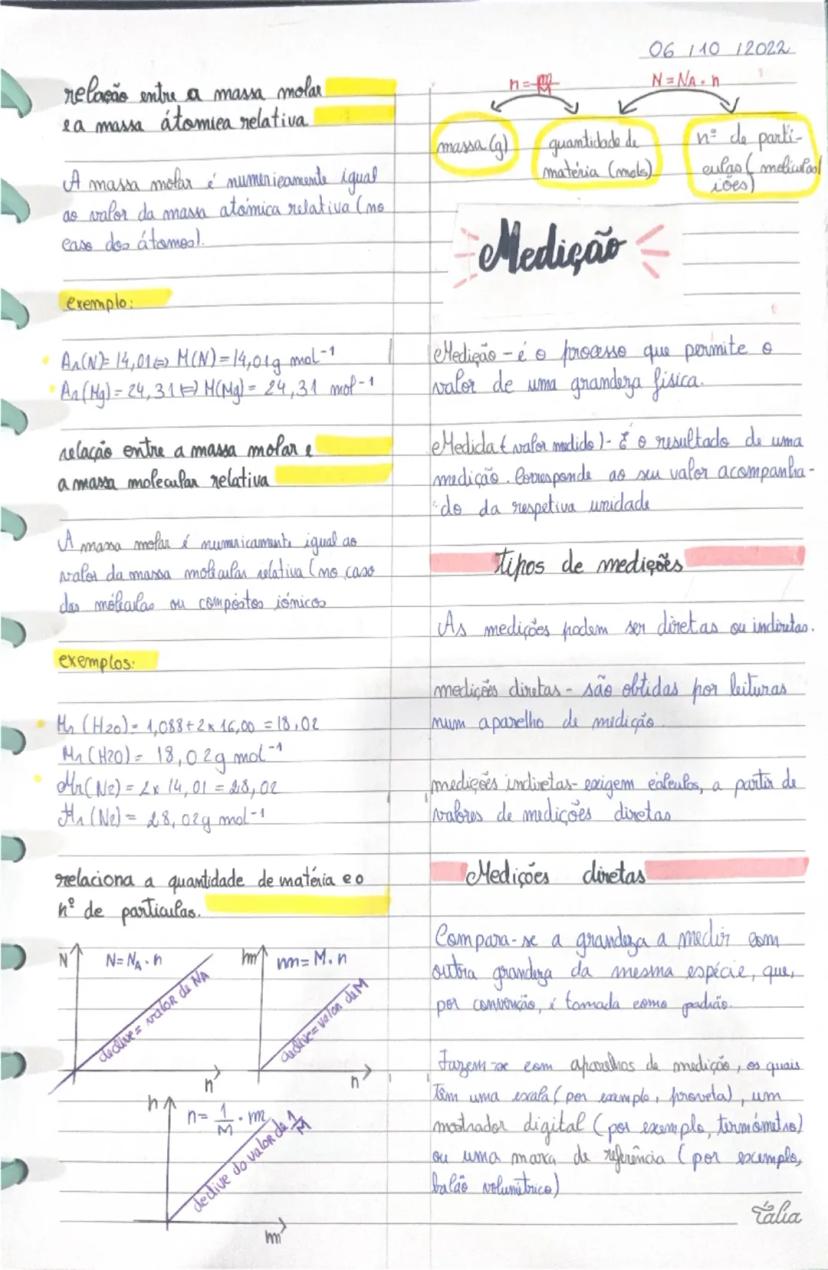 06/10/2022
relação entre a massa molar
e a massa átomica relativa
A massa molar é numericamente igual
ao valor da massa atómica relativa (no
caso dos átomos).
exemplo:
Ar(N)= 14,01⇔ M(N)=14,01g mol⁻¹
Ar(Mg)=24,31⇔ M(Mg)= 24,31 mol⁻¹
relação entre a massa molar e
a massa molecular relativa
A massa molar é numericamente igual ao
valor da massa molicular relativa (no caso
das moléculas ou compostos iónicos
exemplos:
Mr (H2O)= 1,088+2x16,00 =18,02
Mr (H2O)= 18,02g mol⁻¹
Mr(N2)= 2x 14,01 = 28,02
Mr (N2)= 28,02g mol⁻¹
relaciona a quantidade de matéria e o
nº de particulas.
N
N=NA·n
declive= valor de NA
n
m
m=M.n
declive=valor de M
n
n
n= 1/M · m
declive do valor de 1/M
m
n=m/M
N=NA·n
massa(g)
quantidade de
matéria (mols)
nº de parti-
culas(
iões)
Medição
Medição - é o processo que permite o
valor de uma grandeza física.
Medida (valor medido)- É o resultado de uma
medição. Corresponde ao seu valor acompanha-
do da respetiva unidade
tipos de medições
As medições podem ser diretas ou indiretas.
medições diretas - são obtidas por leituras
num aparelho de medição.
medições indiretas- exigem cálculos, a partir de
valores de medições diretas
Medições diretas
Compara-se a grandeza a medir com
outra grandeza da mesma espécie, que,
por convenção, é tomada como padrão.
Fazem-se com aparelhos de medição, os quais
têm uma escala (por exemplo, proveta), um
mostrador digital (por exemplo, termómetro)
ou uma marca de referência (por exemplo,
balão volumétrico)
Tália